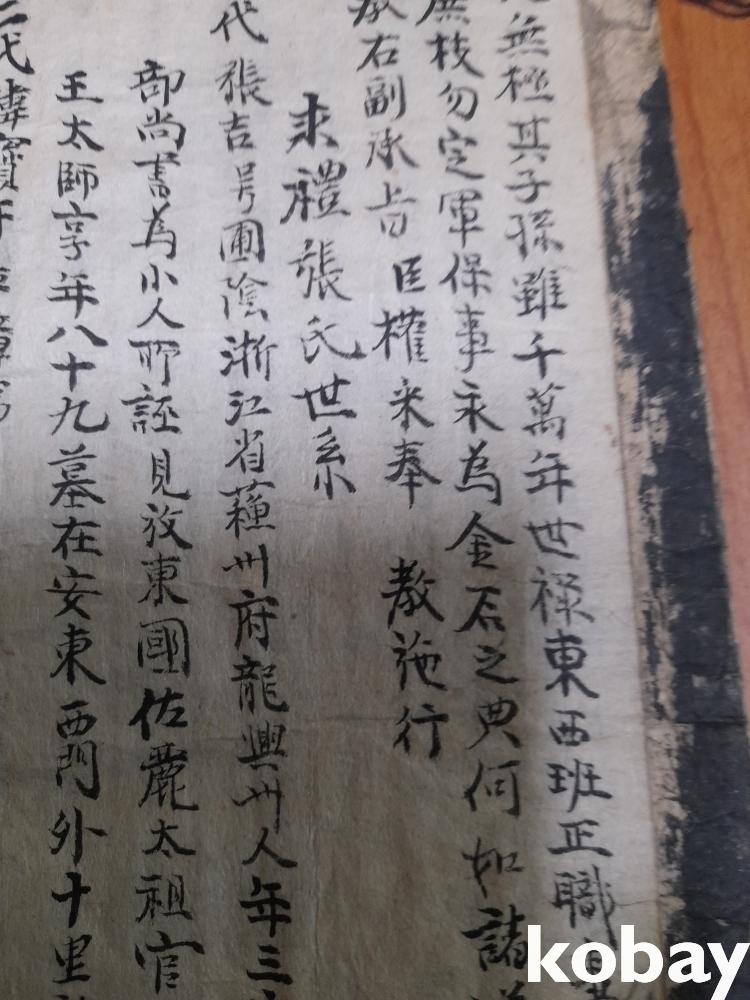 無極其子孫雖千萬年世祿東西班正職
枝勿定軍保事永為金石之典何如諸
右副承旨臣權來奉 教施行
來禮張氏世系
代張吉号圃陰浙江省蘓州府龍興州人年三
部尚書為小人所誣見放東國佐麗太祖官
王太師享年八十九墓在安東西門外十里
二代
kobay